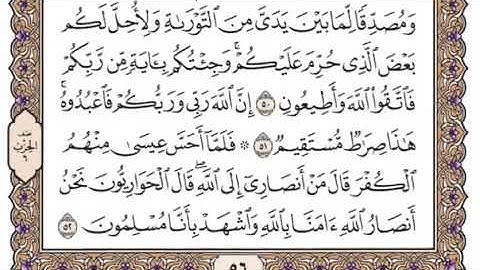 وَمُصَدِّقًا لِّمَا بَيْنَ يَدَيَّ مِنَ ٱلتَّوْرَىٰةِ وَلِأُحِلَّ لَكُم
بَعْضَ ٱلَّذِى حُرِّمَ عَلَيْكُمْ ۚ وَجِئْتُكُم بِـَٔايَةٍ مِّن رَّبِّكُمْ
فَٱتَّقُوا۟ ٱللَّهَ وَأَطِيعُونِ ٥٠ إِنَّ ٱللَّهَ رَبِّى وَرَبُّكُمْ فَٱعْبُدُوهُ ۗ
هَـٰذَا صِرَٰطٌ مُّسْتَقِيمٌ ٥١ ۞ فَلَمَّآ أَحَسَّ عِيسَىٰ مِنْهُمُ
ٱلْكُفْرَ قَالَ مَنْ أَنصَارِىٓ إِلَى ٱللَّهِ ۖ قَالَ ٱلْحَوَارِيُّونَ نَحْنُ
أَنصَارُ ٱللَّهِ ءَامَنَّا بِٱللَّهِ وَٱشْهَدْ بِأَنَّا مُسْلِمُونَ ٥٢
٥٦
نصف
الحزب
٦